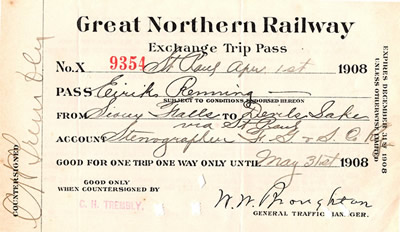 Great Northern Railway
Exchange Trip Pass
No. X 9354 St Paul Apr 1st 1908
PASS Eirik Renning
SUBJECT TO CONDITIONS ENDORSED HEREON
FROM Sioux Falls TO Devils Lake
via St Paul
ACCOUNT Stenographer
GOOD FOR ONE TRIP ONE WAY ONLY UNTIL May 31st 1908
GOOD ONLY
WHEN COUNTERSIGNED BY
C. H. TREMBLY
W. W. Broughton
GENERAL TRAFFIC MANAGER.
COUNTERSIGNED
EXPIRES DECEMBER 31st 1908
UNLESS OTHERWISE LIMITED